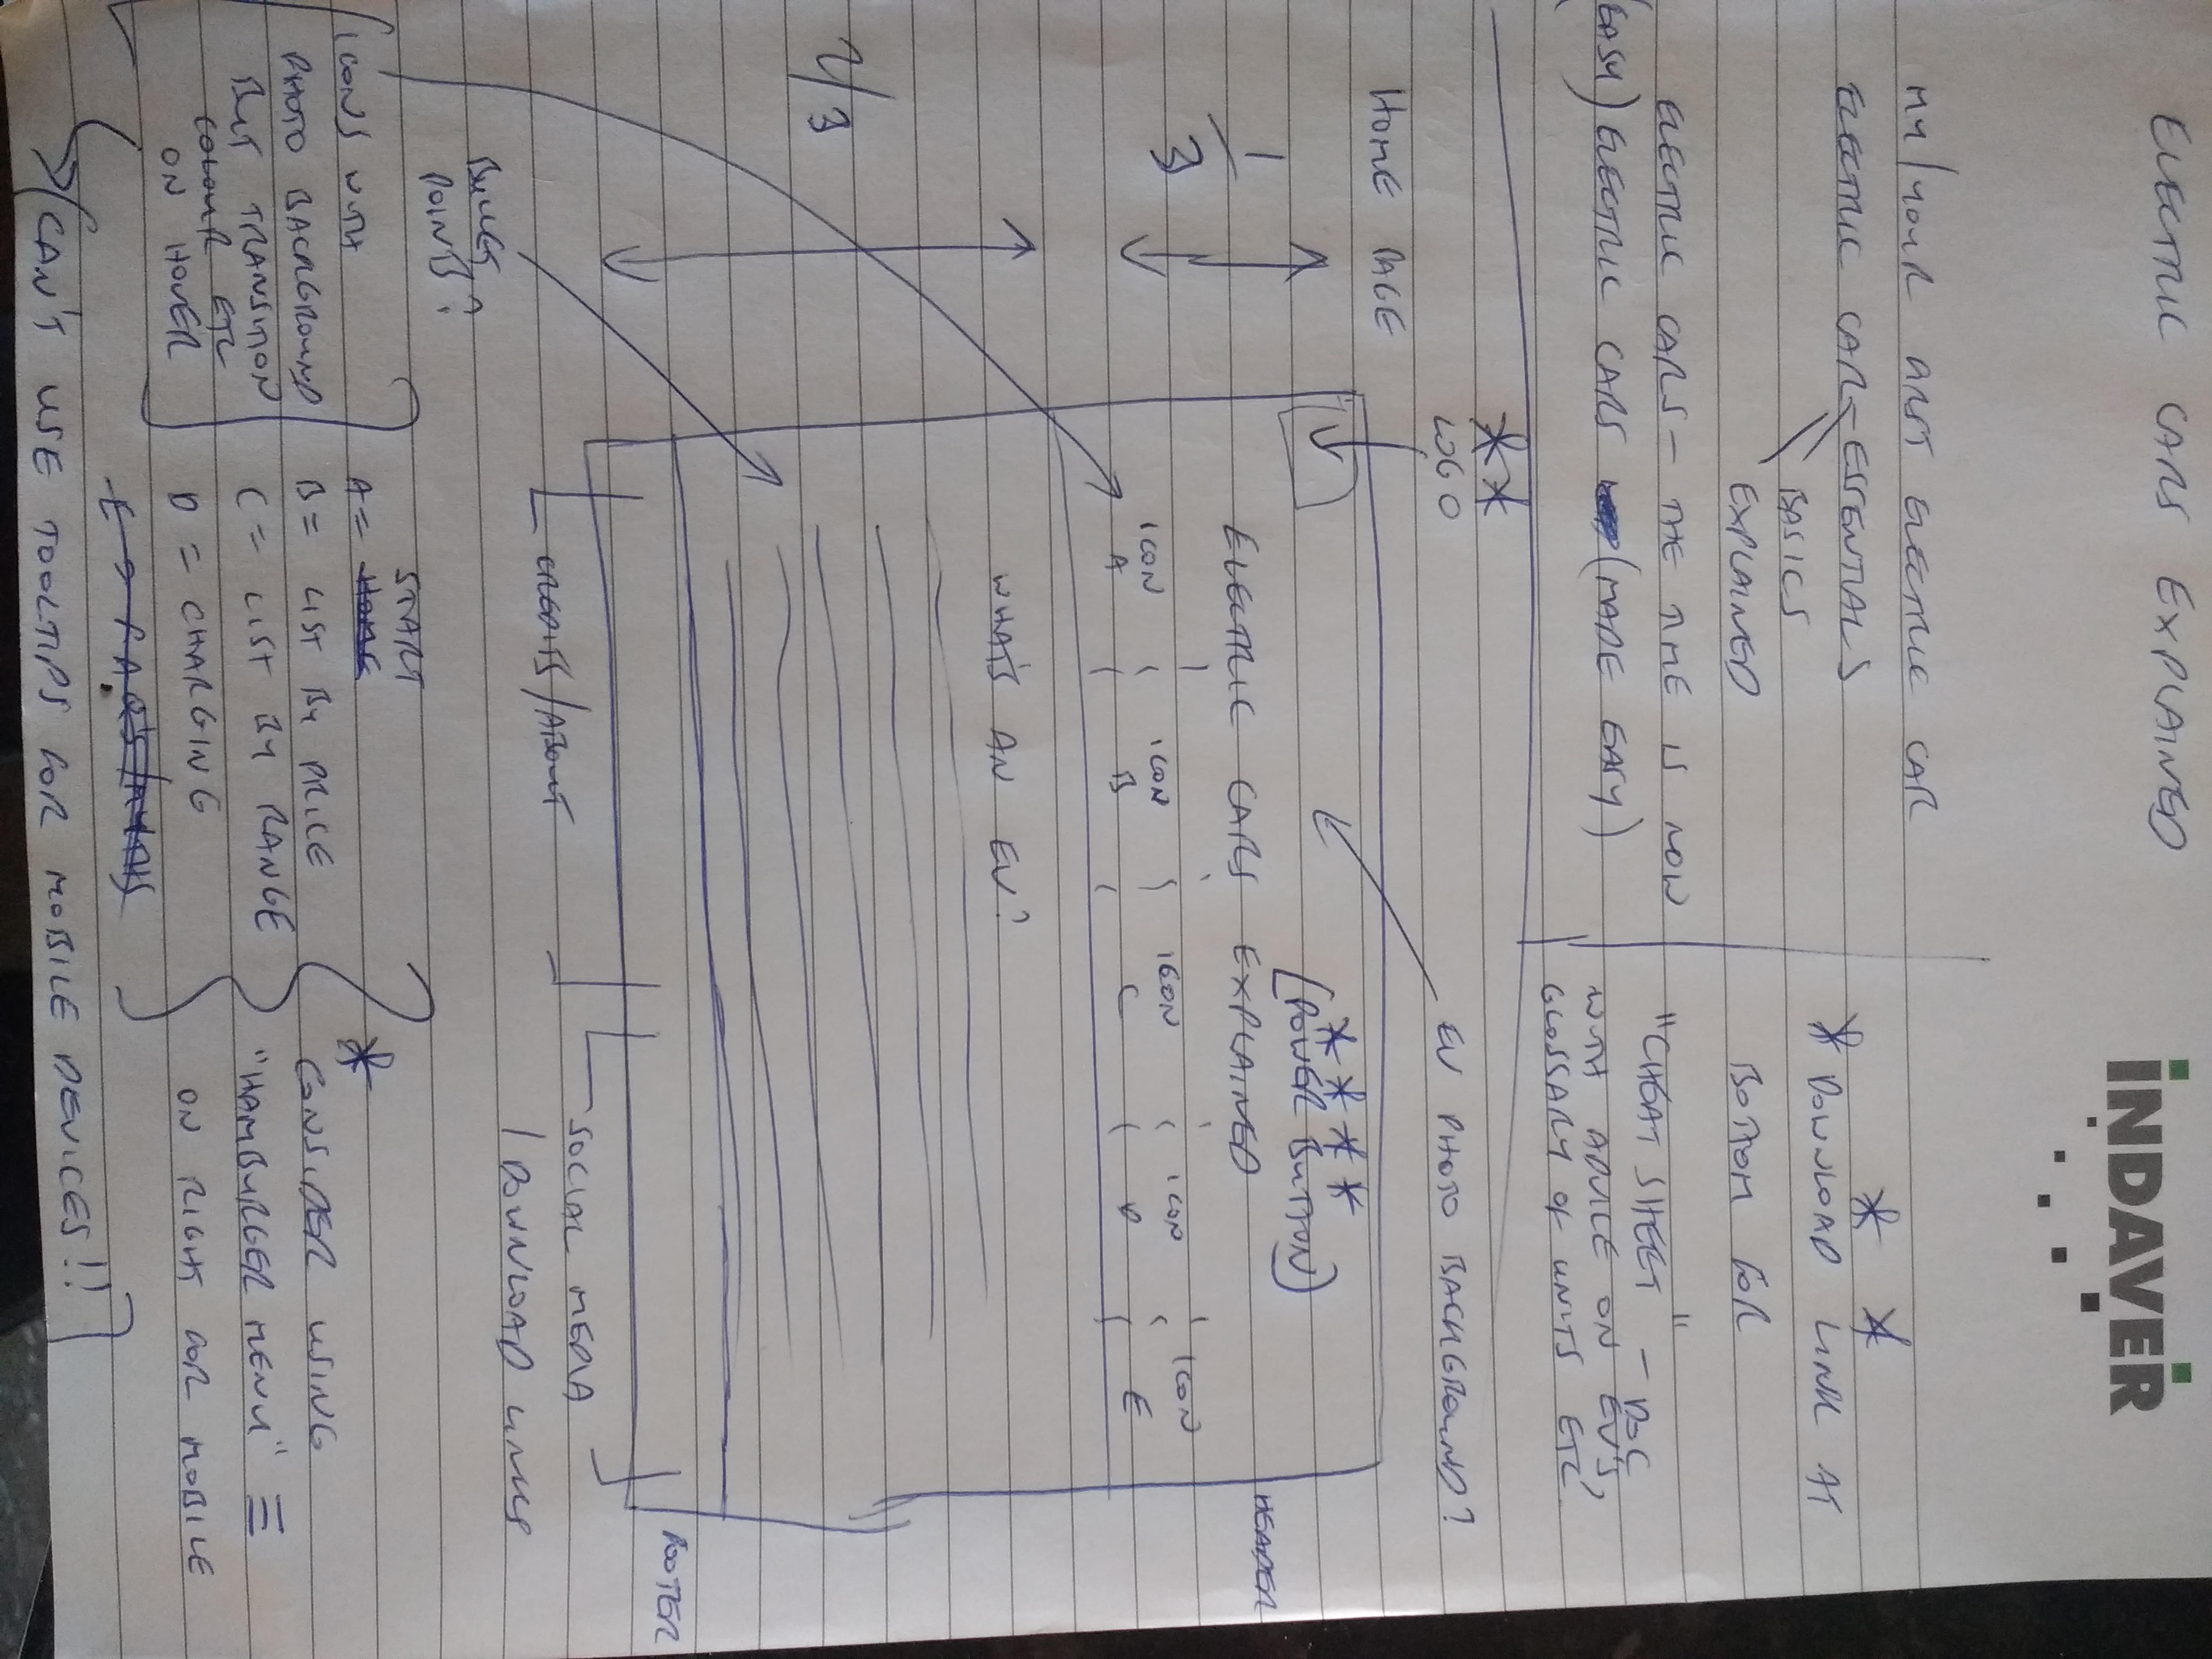 ELECTRIC CARS EXPLAINED
INDAVER
MY/YOUR FIRST ELECTRIC CAR
ELECTRIC CAR - ESSENTIALS
BASICS
EXPLAINED
ELECTRIC CARS - THE TIME IS NOW
(EASY) ELECTRIC CARS (MADE EASY)
* DOWNLOAD LINK AT
BOTTOM FOR
"CHEAT SHEET" - DOC
WITH ADVICE ON EV'S,
GLOSSARY OF UNITS ETC.
**
LOGO
HOME PAGE
EV PHOTO BACKGROUND?
****
(POWER BUTTON)
HEADER
ELECTRIC CARS EXPLAINED
1/3
ICON A
ICON B
ICON C
ICON D
ICON E
WHAT'S AN EV?
2/3
FOOTER
BULLET POINTS?
CREDITS/ABOUT
SOCIAL MEDIA
/ DOWNLOAD LINKS
ICONS WITH
PHOTO BACKGROUND
BUT TRANSITION
COLOUR ETC
ON HOVER
START
A = HOME
B = LIST BY PRICE
C = LIST BY RANGE
D = CHARGING
* CONSIDER USING
"HAMBURGER MENU" ≡
ON RIGHT FOR MOBILE
CAN'T USE TOOLTIPS FOR MOBILE DEVICES!!